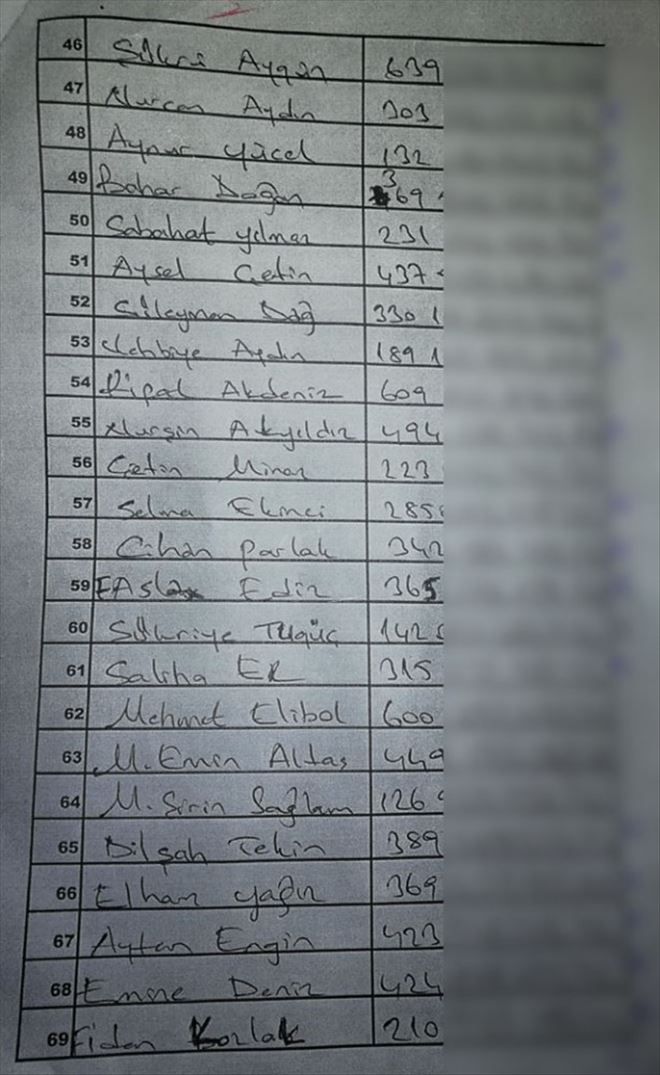 46 Şükrü Aygün 639
47 Nurcan Aydın 303
48 Aynur Yücel 132
49 Bahar Doğan 369
50 Sabahat Yılmaz 231
51 Aysel Çetin 437
52 Süleyman Dağ 330 1
53 Vehbiye Aydın 189 1
54 Rifat Akdeniz 609
55 Nurşin Akyıldız 494
56 Çetin Minaz 223
57 Selma Ekinci 285
58 Cihan Parlak 342
59 Ediz 365
60 Şükriye 142
61 Saliha ER 315
62 Mehmet Elibol 600
63 M. Emin Altaş 449
64 M. Şirin Sağlam 126
65 Dilşah Tekin 389
66 Elhan Yağız 369
67 Aytan Engin 423
68 Emine Deniz 424
69 Fidan 210